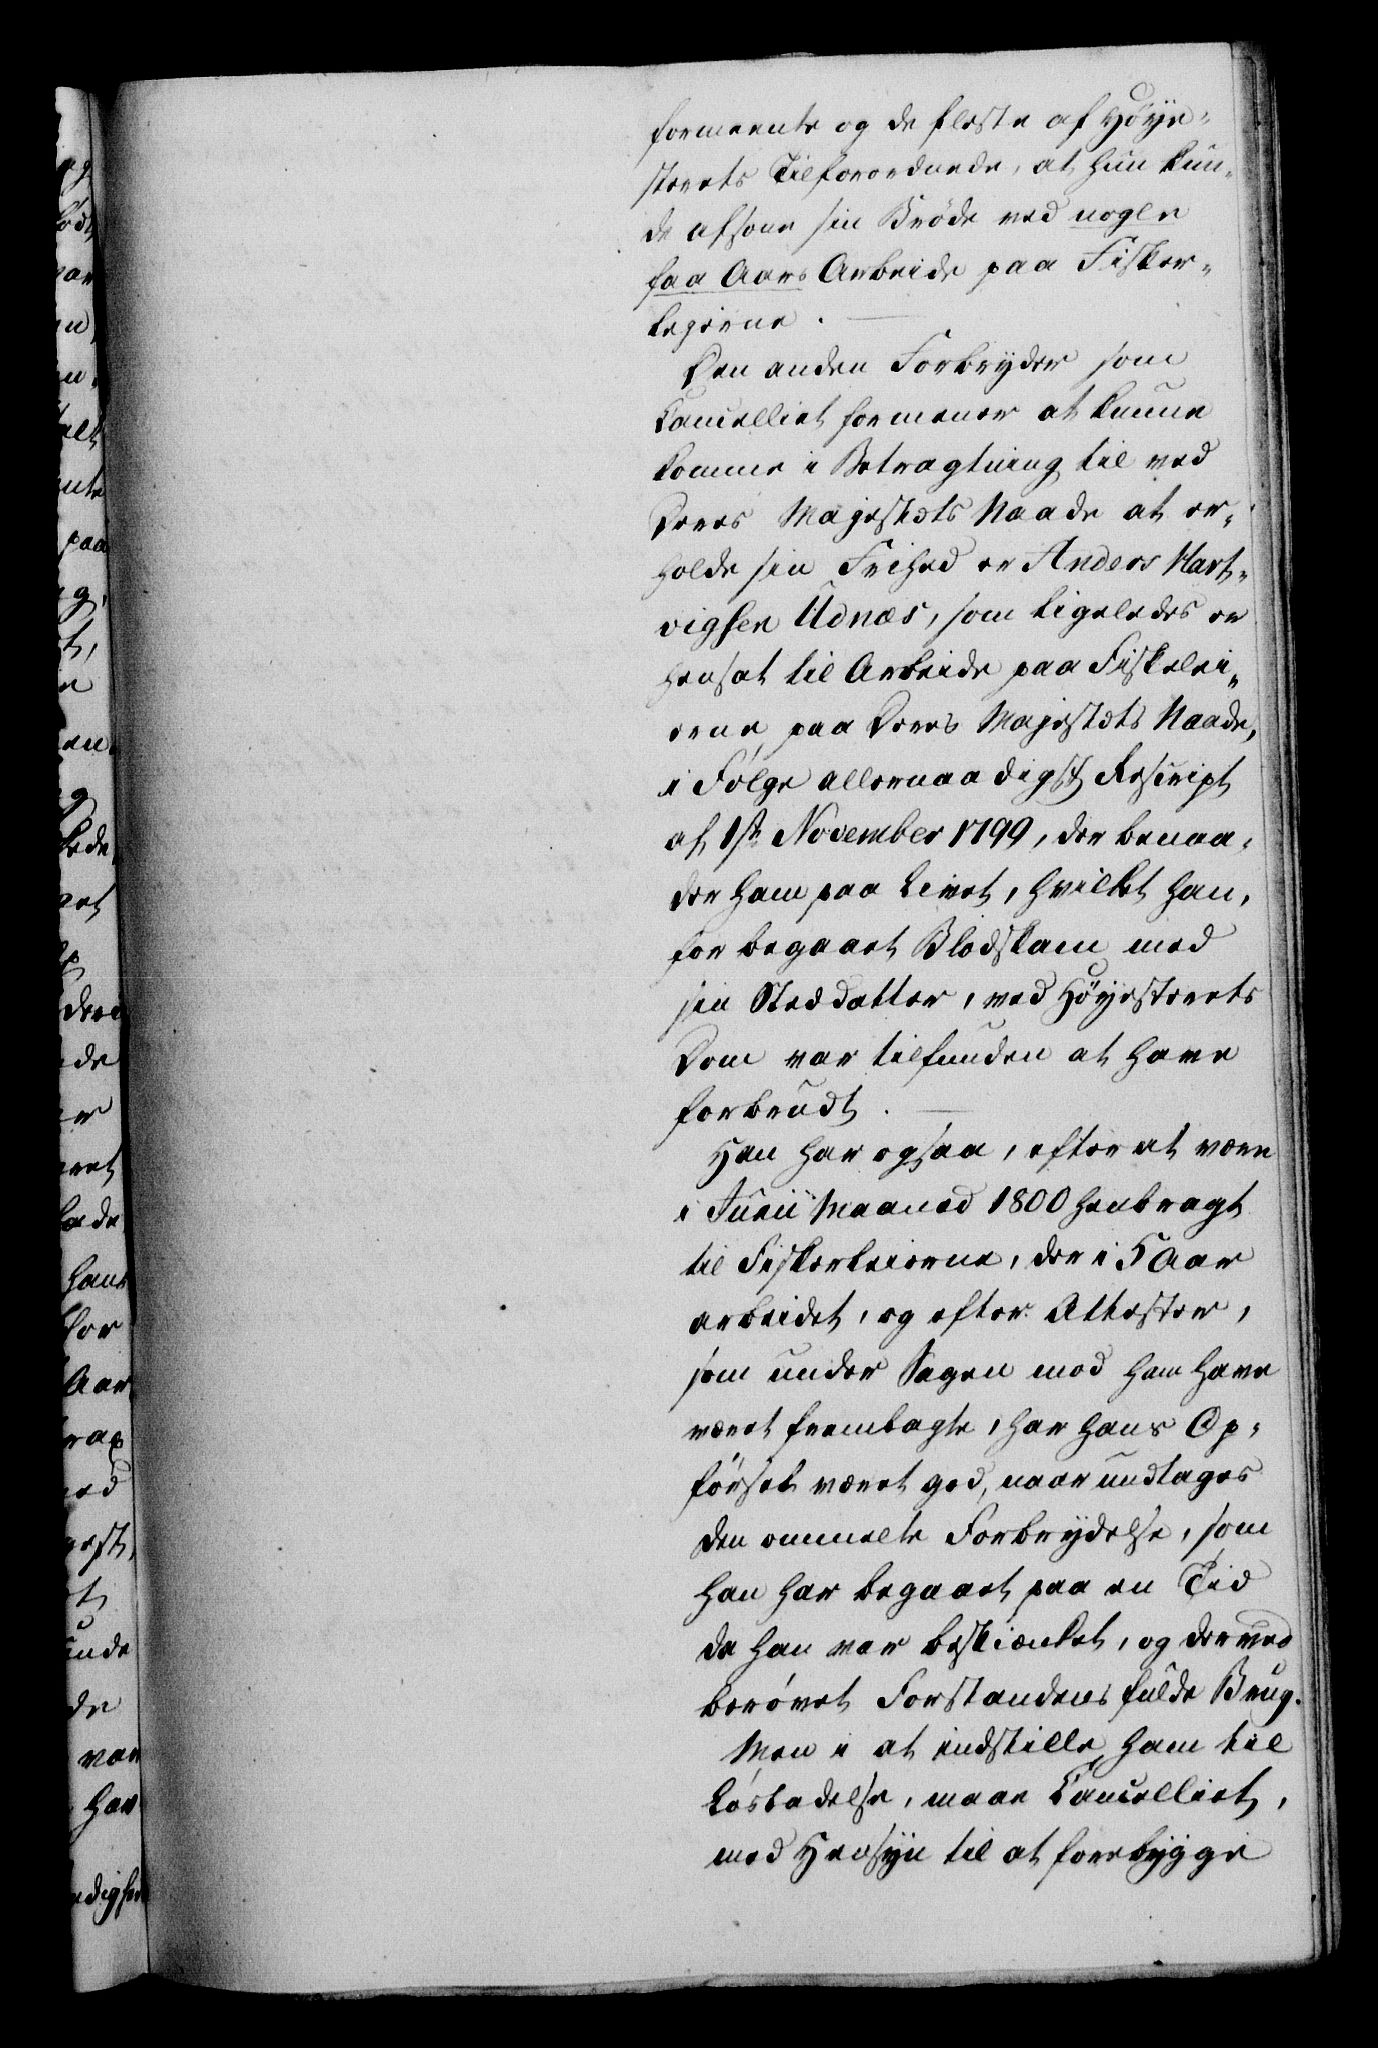 formeente og de fleste af Høye¬
sterets Tilforordnede, at hun kun¬
de afsone sin Brøde ved nogle
faa Aars Arbeide paa Fisker¬
leyerne.
Den anden Forbryder som
Cancelliet formener at kunne
komme i Betragtning til ved
Deres Majestæts Naade at er¬
holde sin Frihed er Anders Hart¬
vigsen Udnæs, som ligeledes er
hensat til Arbeide paa Fiskelei¬
erne, paa Deres Majestæts Naade,
i Følge allernaadigst Rescript
af 1ste November 1799, der benaa¬
der ham paa Livet, hvilket han,
for begaaet Blodskam med
sin Steddatter, ved Høyesterets
Dom var tilfunden at have
forbrudt.
Han har ogsaa, efter at være
i Junii Maaned 1800 henbragt
til Fiskerleierne, der i 5 Aar
arbeidet, og efter Attester,
som under Sagen mod ham have
været fremlagte, har hans Op¬
førsel været god, naar undtages
den ommelte Forbrydelse, som
han har begaaet paa en Tid
da han var beskiænket, og derved
berøvet Forstandens fulde Brug.
Men i at indstille ham til
Løsladelse, maae Cancelliet,
med Hensyn til at forebygge